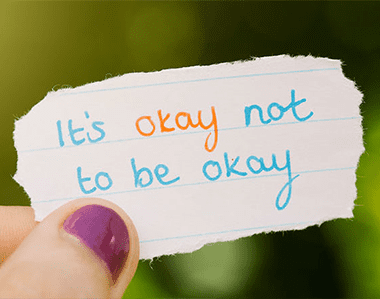 It's okay not
to be okay